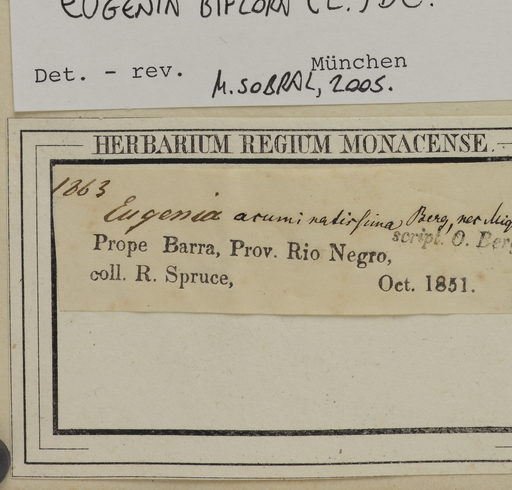 EUGENIA BIFLORA (L.) DC.
Det. - rev. München
M. SOBRAL, 2005.
HERBARIUM REGIUM MONACENSE.
1863
Eugenia acuminatissima, Berg, nec Miq
script. O. Berg
Prope Barra, Prov. Rio Negro,
coll. R. Spruce, Oct. 1851.